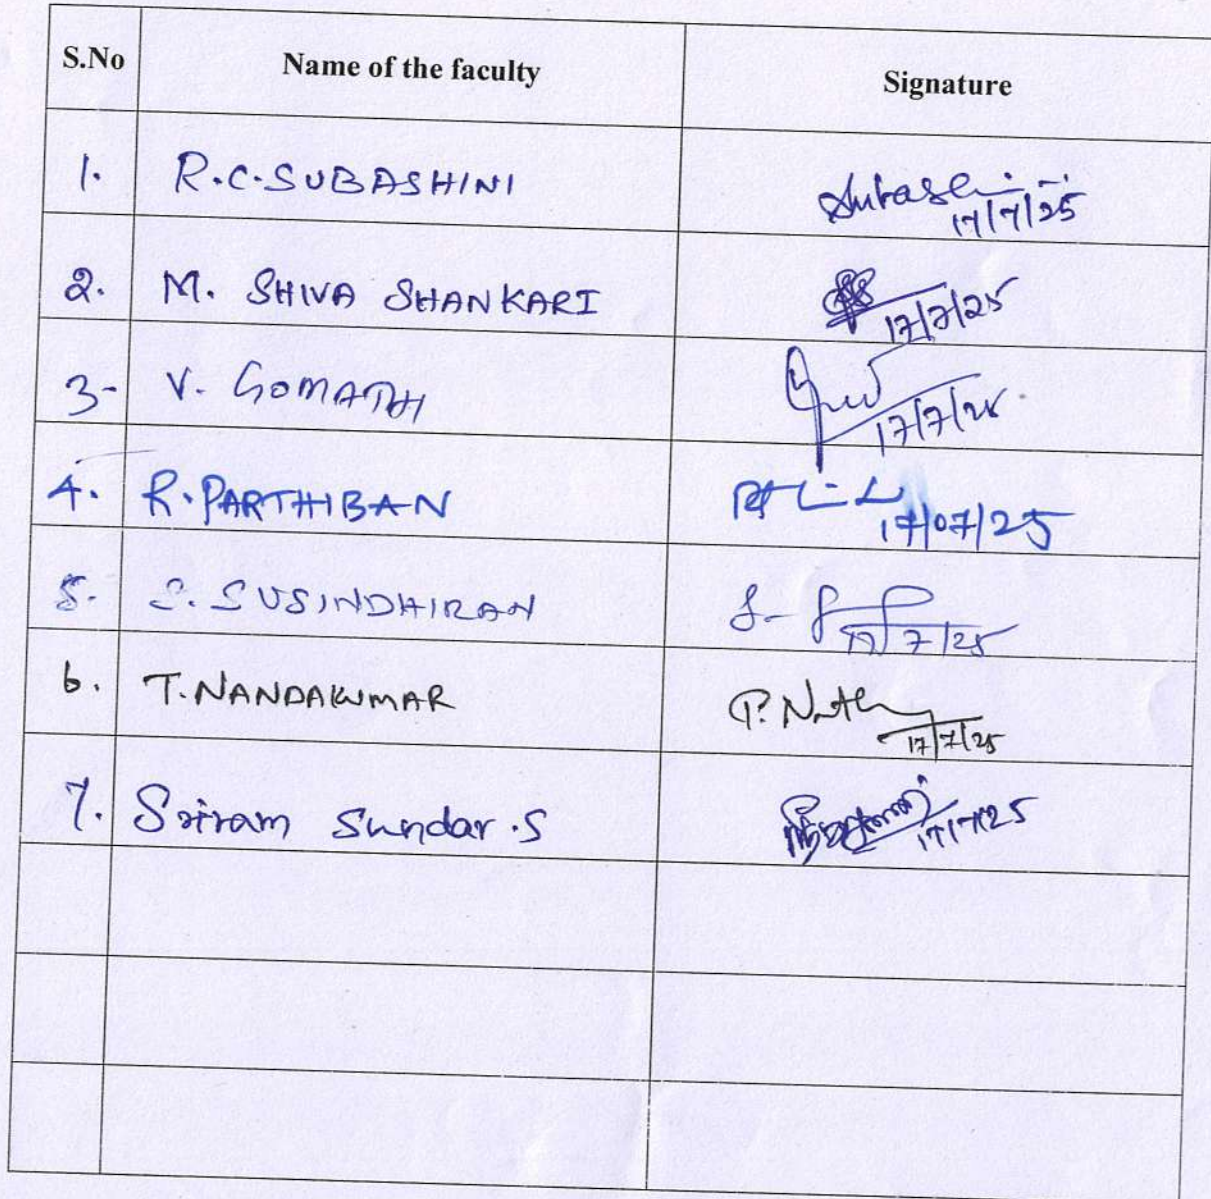 S.No Name of the faculty Signature
1. R.C.SUBASHINI
17/7/25
2. M. SHIVA SHANKARI
17/7/25
3- V. GOMATHI
17/7/25
4. R.PARTHIBAN
17/07/25
5. S. SUSINDHIRAN
17/7/25
6. T.NANDAKUMAR
17/7/25
7. Sriram Sundar.S
17/7/25